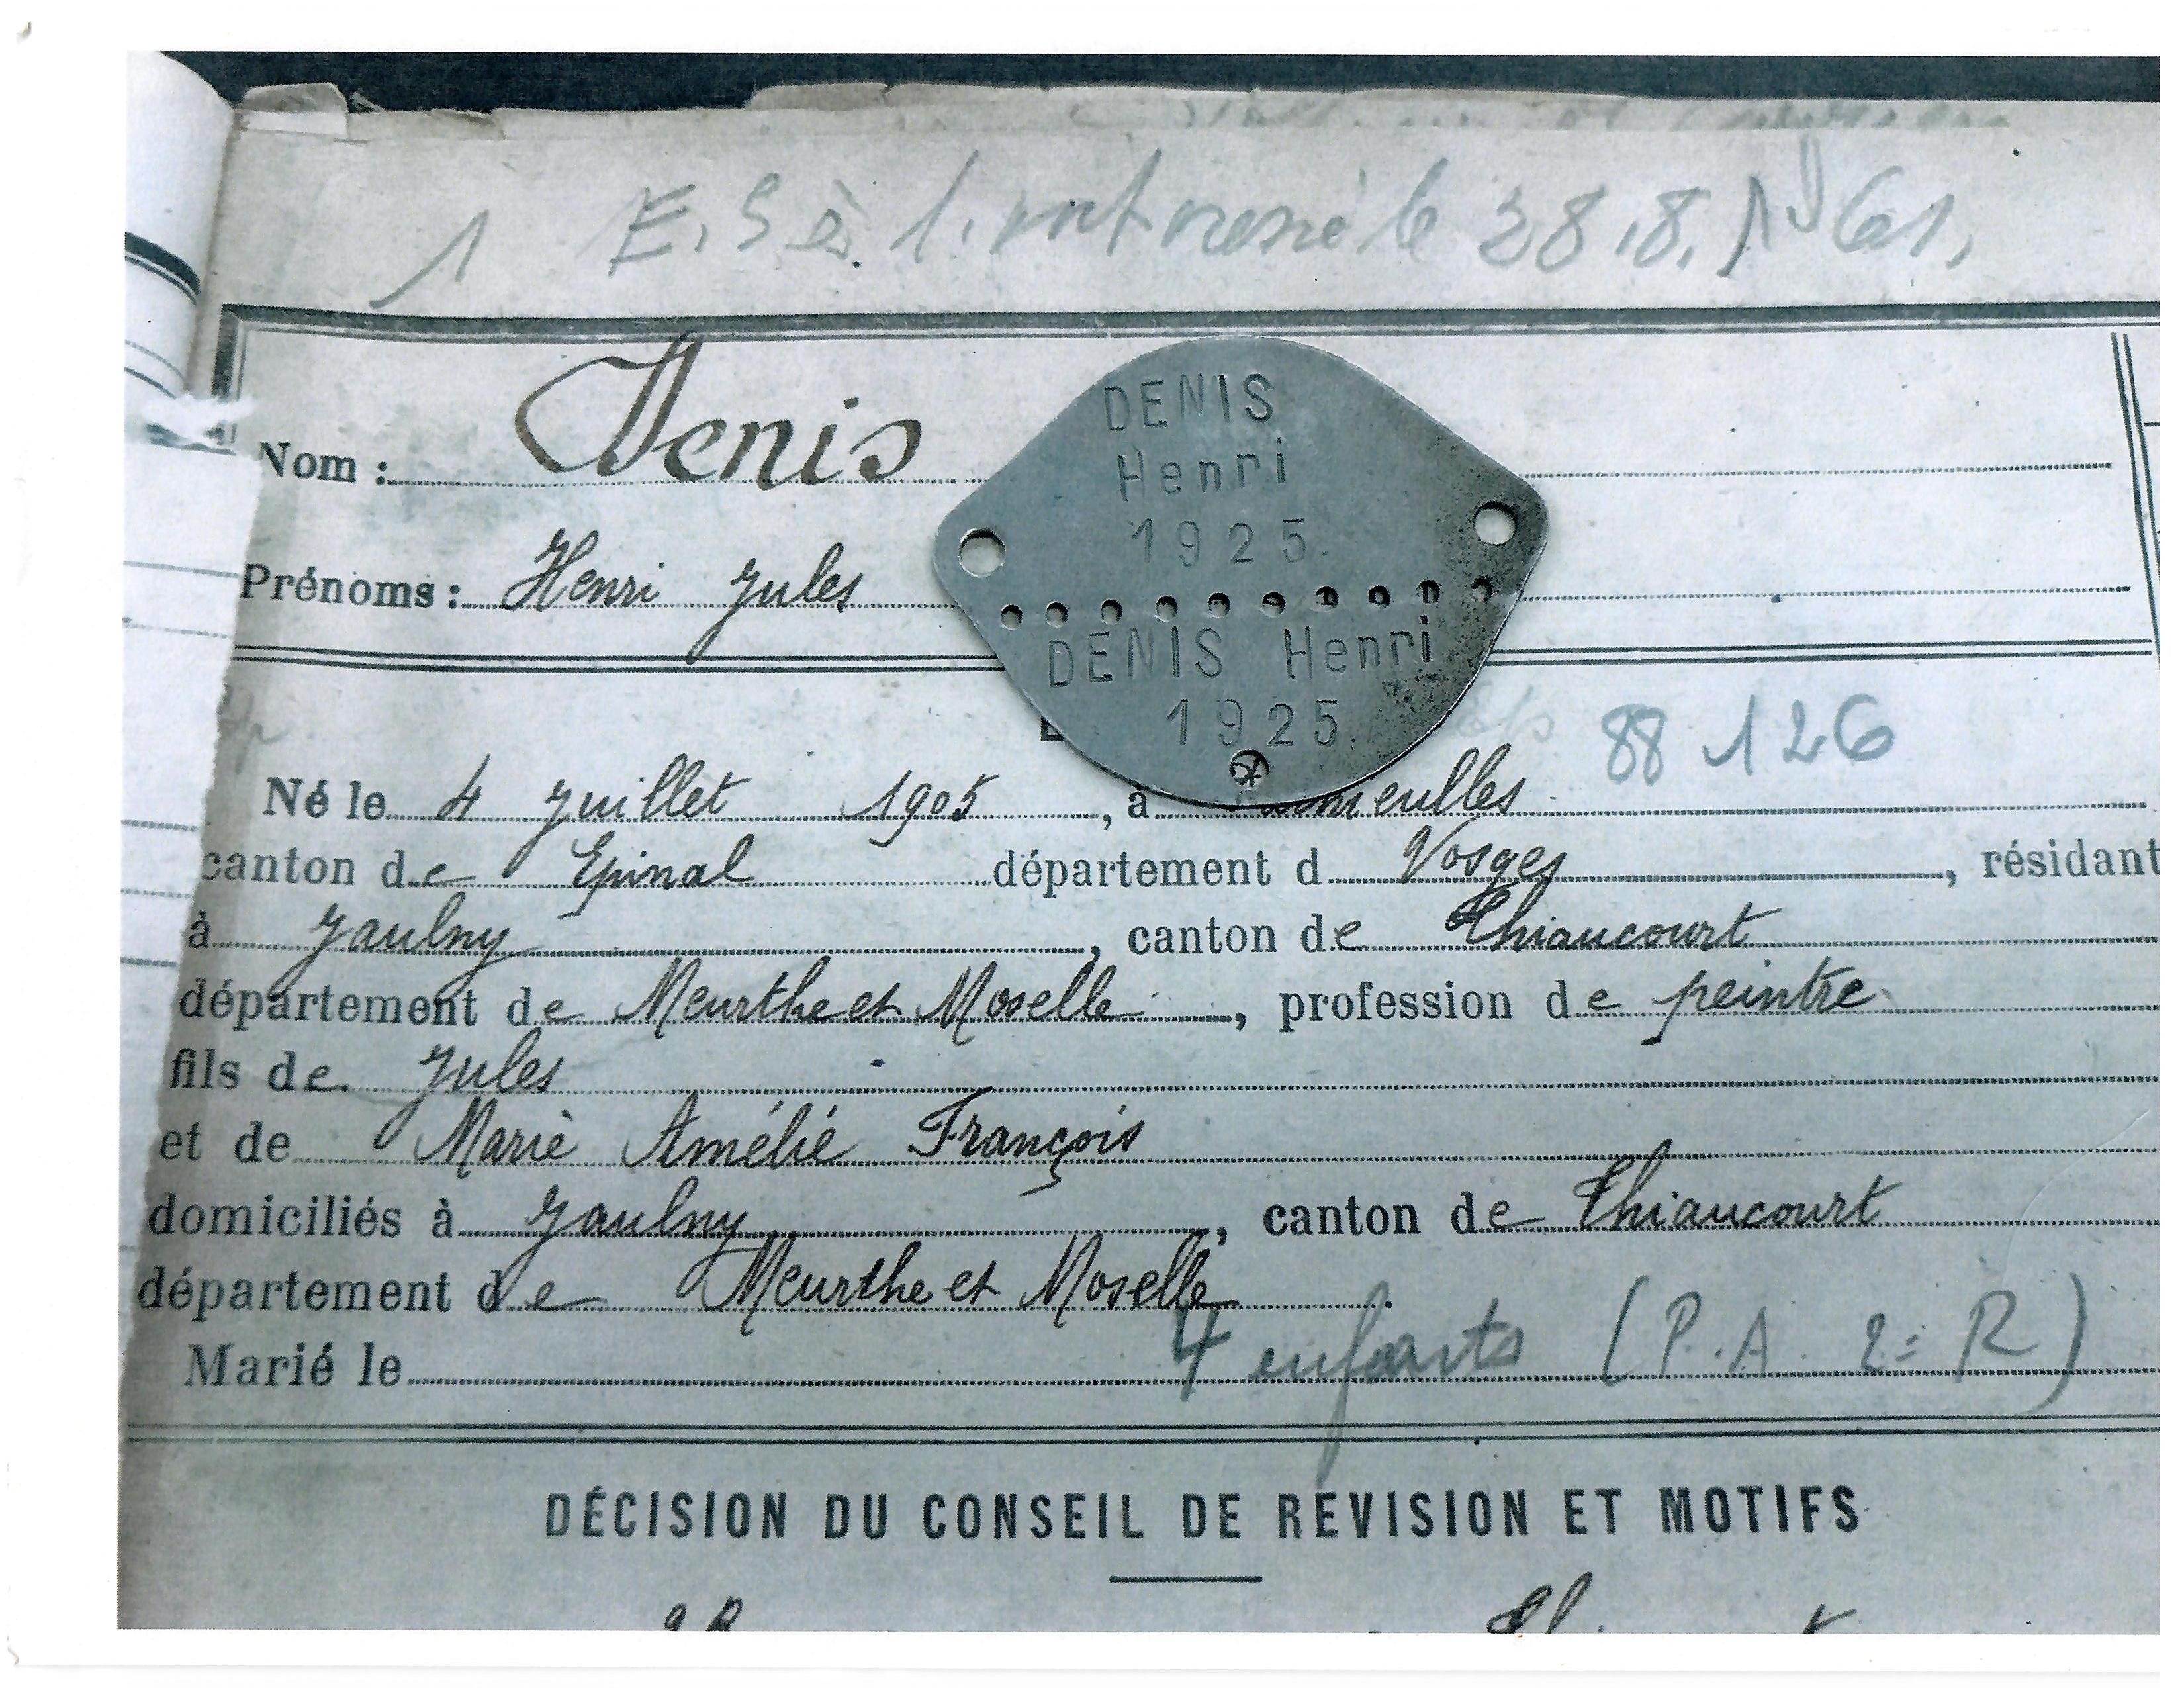 1 E. S à le 28.8. 61.
Nom : Denis
DENIS
Henri
1925
Prénoms : Henri Jules
DENIS Henri
1925
88 126
Né le 4 Juillet 1905, à
canton de Epinal département d Vosges, résidant
à Jaulny, canton de Thiaucourt
département de Meurthe et Moselle, profession de peintre
fils de Jules
et de Marie Amélie François
domiciliés à Jaulny, canton de Thiaucourt
département de Meurthe et Moselle.
Marié le 4 enfants (P.A. 2= R)
DÉCISION DU CONSEIL DE REVISION ET MOTIFS